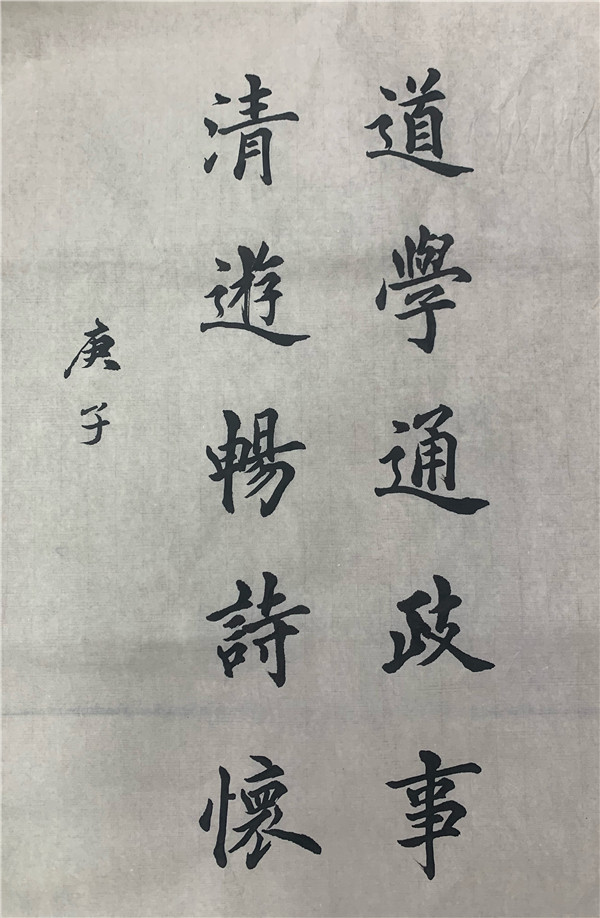 道學通政事
清遊暢詩懷
庚子